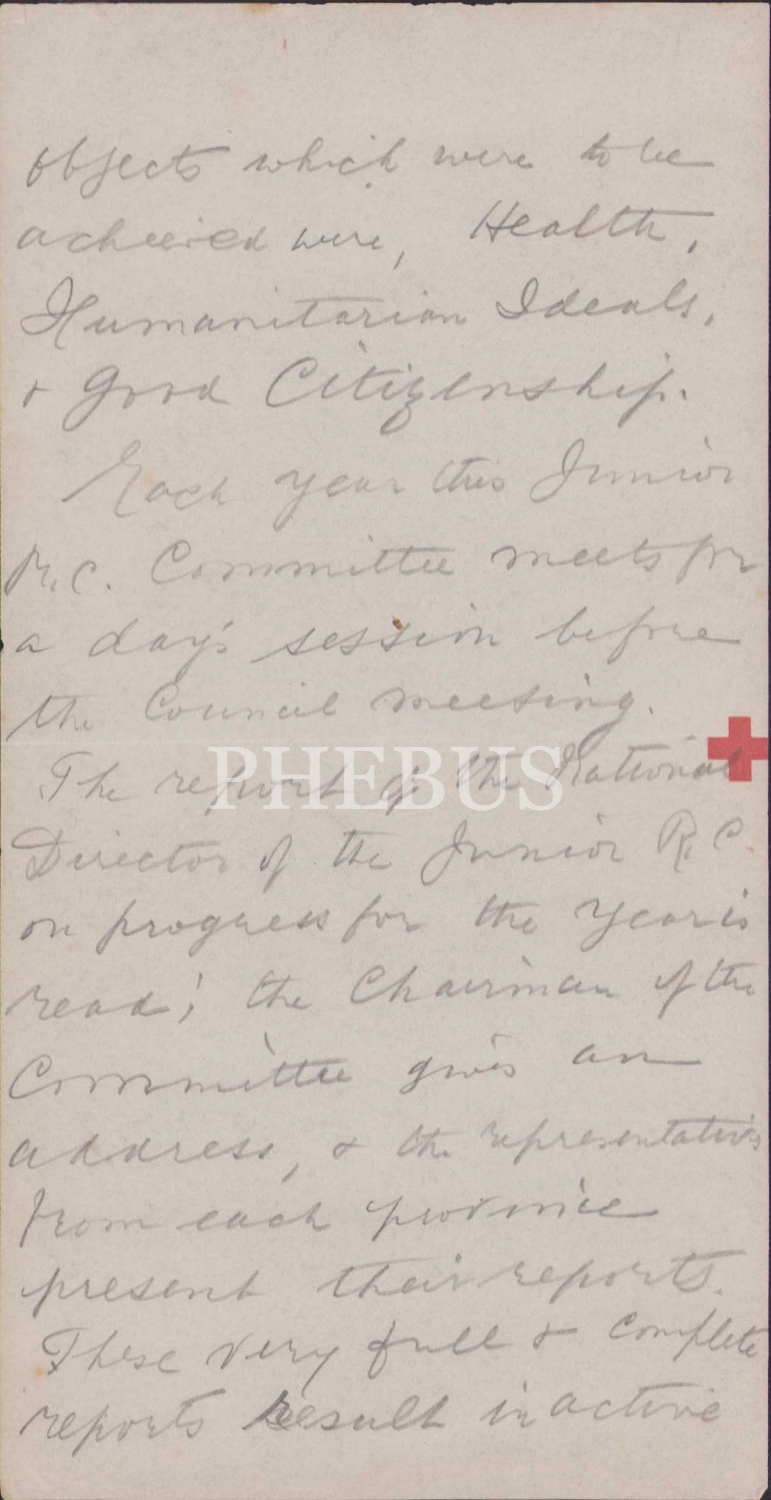 objects which were to be
acheeived were, Health,
Humanitarian Ideals,
& Good Citizenship.
Each year this Junior
R.C. Committee meets for
a day's session before
the Council meeting.
PHEBUS
The report of the National
Director of the Junior R.C.
on progress for the year is
read; the Chairman of the
Committee gives an
address, & the representatives
from each province
present their reports.
These very full & complete
reports result in active